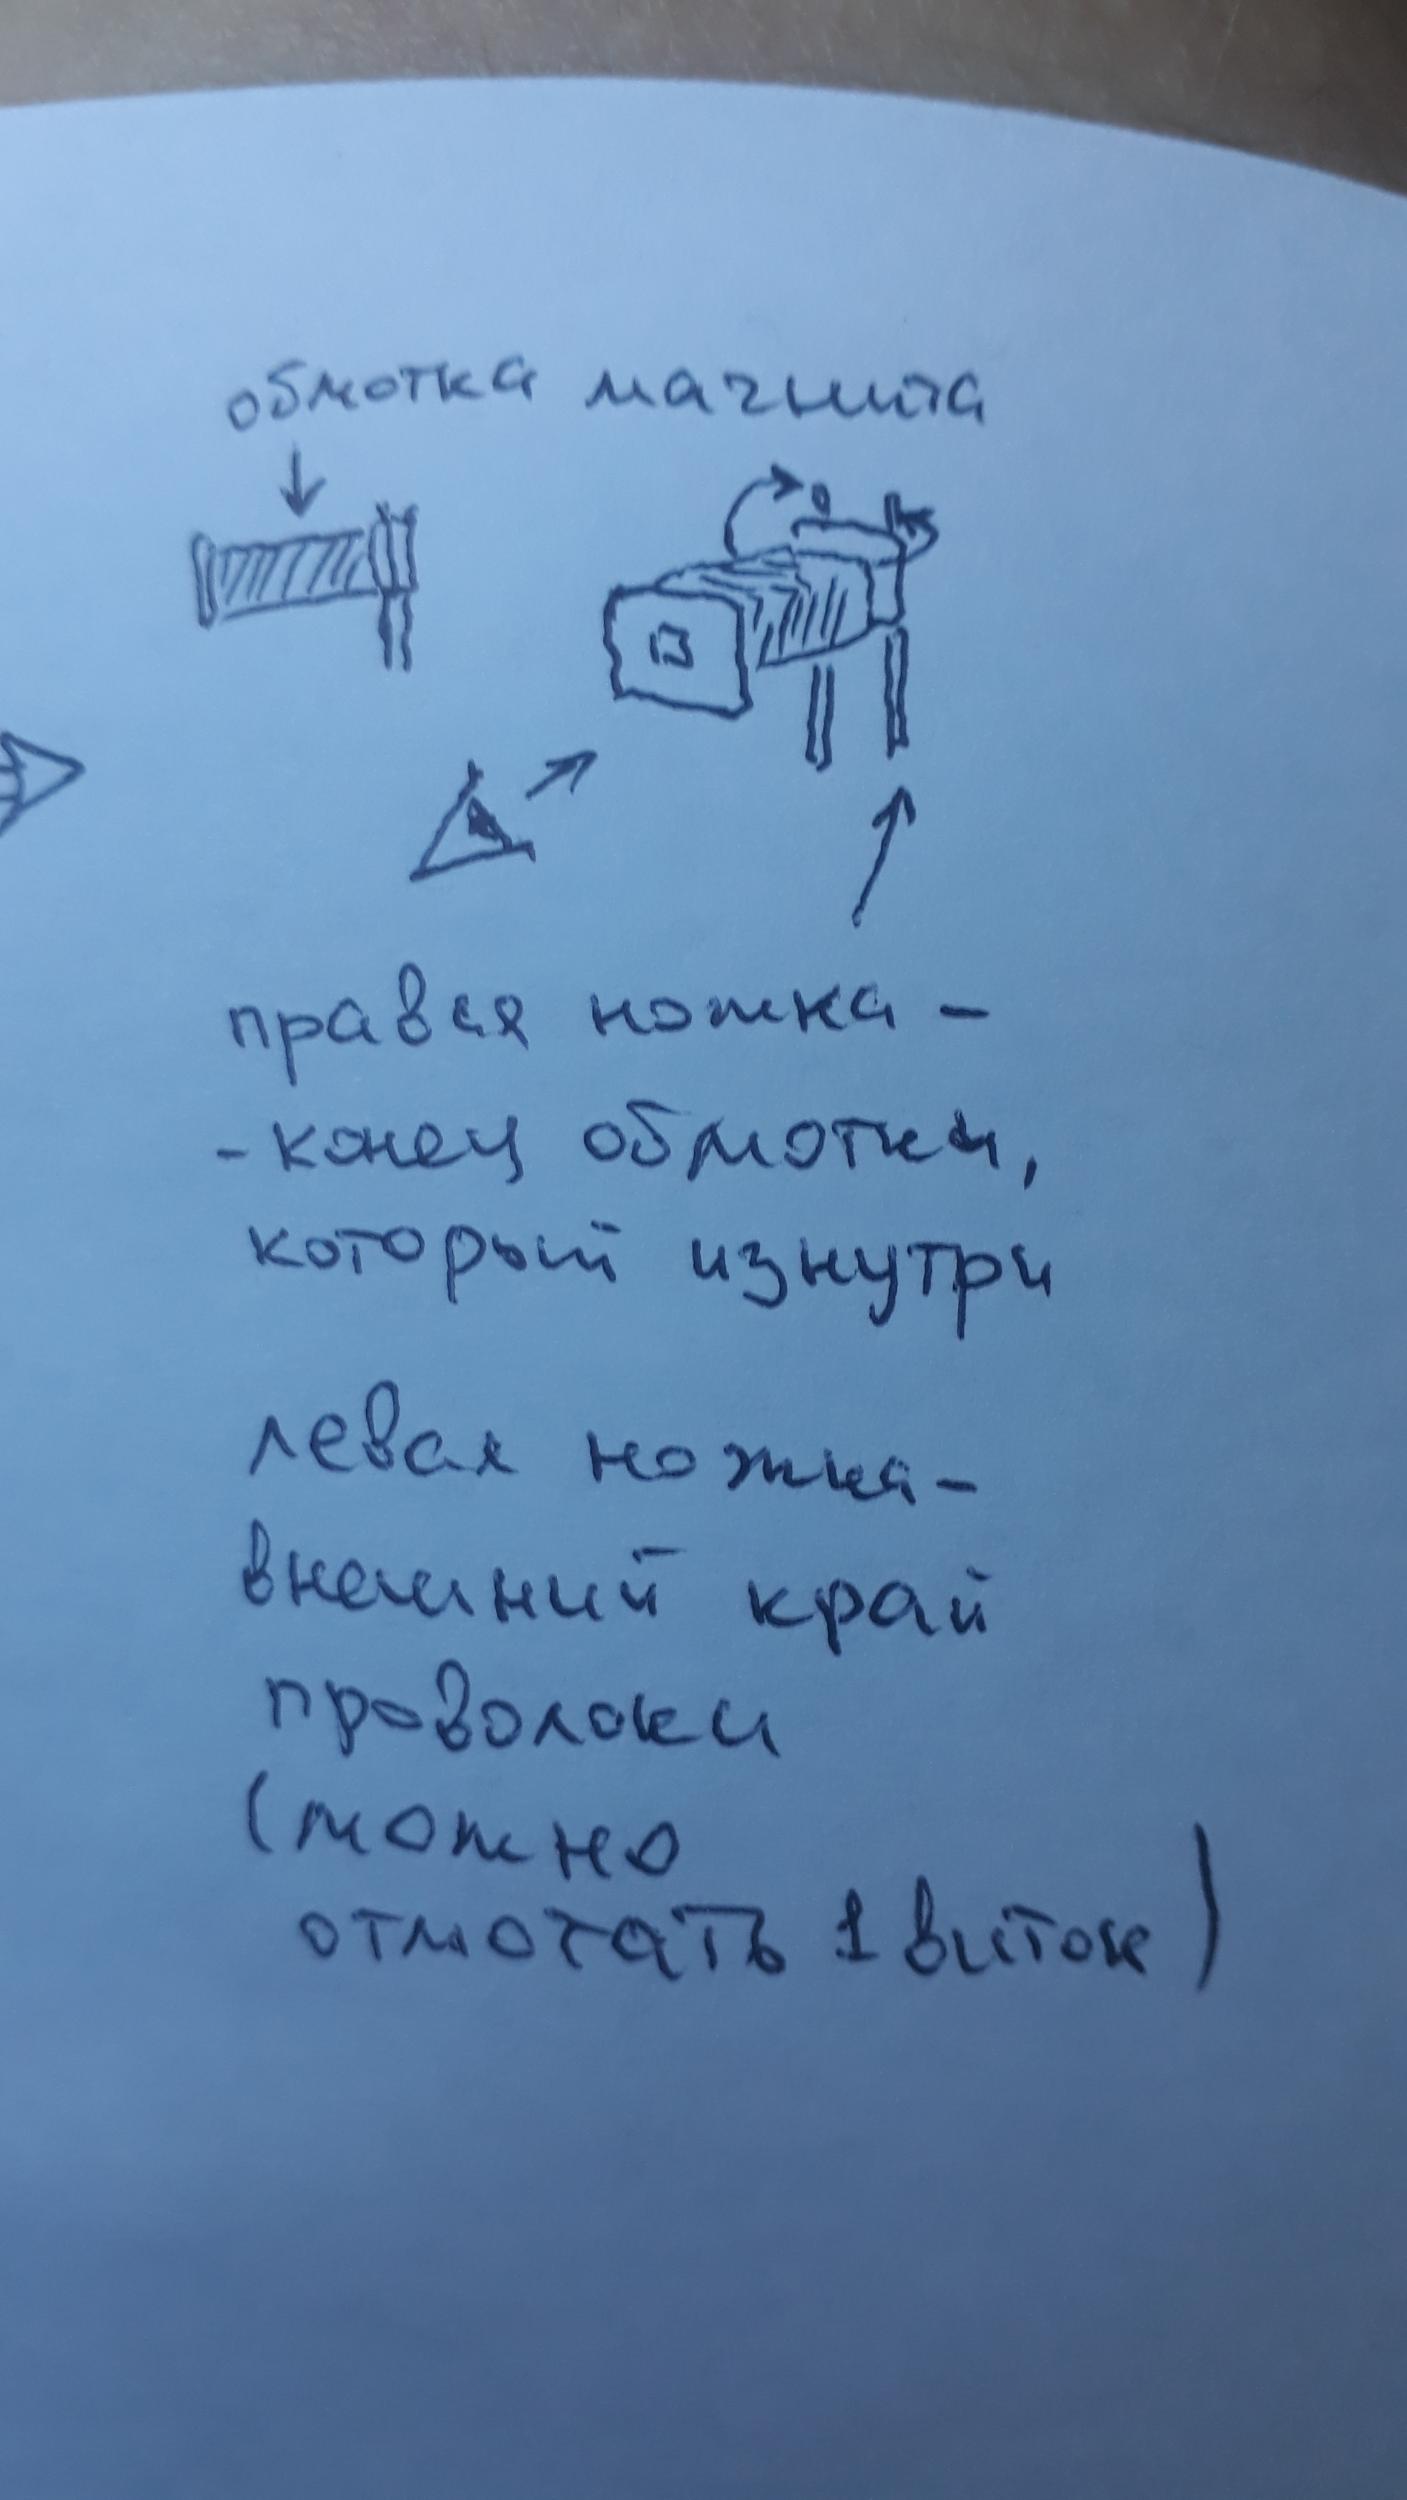 обмотка магнита
правая ножка -
- конец обмотки,
который изнутри
левая ножка -
внешний край
проволоки
(можно
отмотать 1 виток)